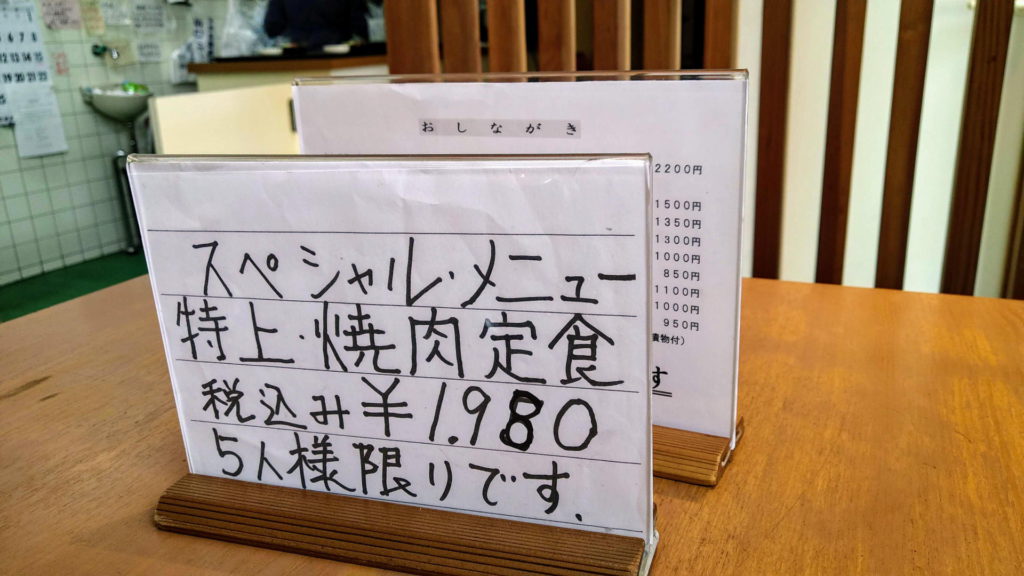 スペシャル・メニュー
特上・焼肉定食
税込み¥1.980
5人様限りです.
おしながき
2200円
1500円
1350円
1300円
1000円
850円
1100円
1000円
950円
漬物付)
す